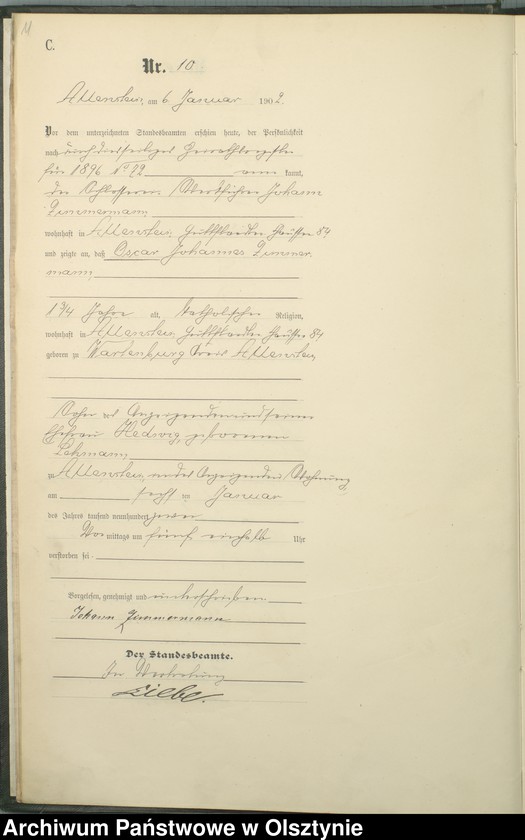 11
C.
Nr. 10
Allenstein, am 6 Januar 1902.
Vor dem unterzeichneten Standesbeamten erschien heute, der Persönlichkeit
nach durch diesseitiges
für 1896 No 92 kannt,
der Schlosser Johann
Zimmermann
wohnhaft in Allenstein, Guttstädter Chaussee 84
und zeigte an, daß Oscar Johannes Zimmer
mann,
1 3/4 Jahre alt, katholischer Religion,
wohnhaft in Allenstein, Guttstädter Chaussee 84
geboren zu Wartenburg Kreis Allenstein,
Sohn des Anzeigenden und seiner
Ehefrau Hedwig, geborenen
Lehmann
zu Allenstein, in des Anzeigenden Wohnung
am sechs ten Januar
des Jahres tausend neunhundert zwei
Vor mittags um fünf einhalb Uhr
verstorben sei
Vorgelesen, genehmigt und unterschrieben
Johann Zimmermann
Der Standesbeamte.
In Vertretung
Archiwum Państwowe w Olsztynie